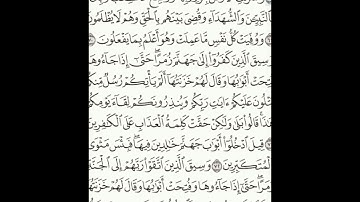 ٱلنَّبِيِّـۧنَ وَٱلشُّهَدَآءِ وَقُضِيَ بَيْنَهُم بِٱلْحَقِّ وَهُمْ لَا يُظْلَمُونَ
وَوُفِّيَتْ كُلُّ نَفْسٍ مَّا عَمِلَتْ وَهُوَ أَعْلَمُ بِمَا يَفْعَلُونَ
وَسِيقَ ٱلَّذِينَ كَفَرُوٓا۟ إِلَىٰ جَهَنَّمَ زُمَرًا حَتَّىٰٓ إِذَا جَآءُوهَا
فُتِحَتْ أَبْوَٰبُهَا وَقَالَ لَهُمْ خَزَنَتُهَآ أَلَمْ يَأْتِكُمْ رُسُلٌ مِّنكُمْ
يَتْلُونَ عَلَيْكُمْ ءَايَٰتِ رَبِّكُمْ وَيُنذِرُونَكُمْ لِقَآءَ يَوْمِكُمْ
هَٰذَا قَالُوا۟ بَلَىٰ وَلَٰكِنْ حَقَّتْ كَلِمَةُ ٱلْعَذَابِ عَلَى ٱلْكَٰفِرِينَ
قِيلَ ٱدْخُلُوٓا۟ أَبْوَٰبَ جَهَنَّمَ خَٰلِدِينَ فِيهَا فَبِئْسَ مَثْوَى
ٱلْمُتَكَبِّرِينَ ٧٢ وَسِيقَ ٱلَّذِينَ ٱتَّقَوْا۟ رَبَّهُمْ إِلَى ٱلْجَنَّةِ
زُمَرًا حَتَّىٰٓ إِذَا جَآءُوهَا وَفُتِحَتْ أَبْوَٰبُهَا وَقَالَ لَهُمْ خَزَنَتُهَا